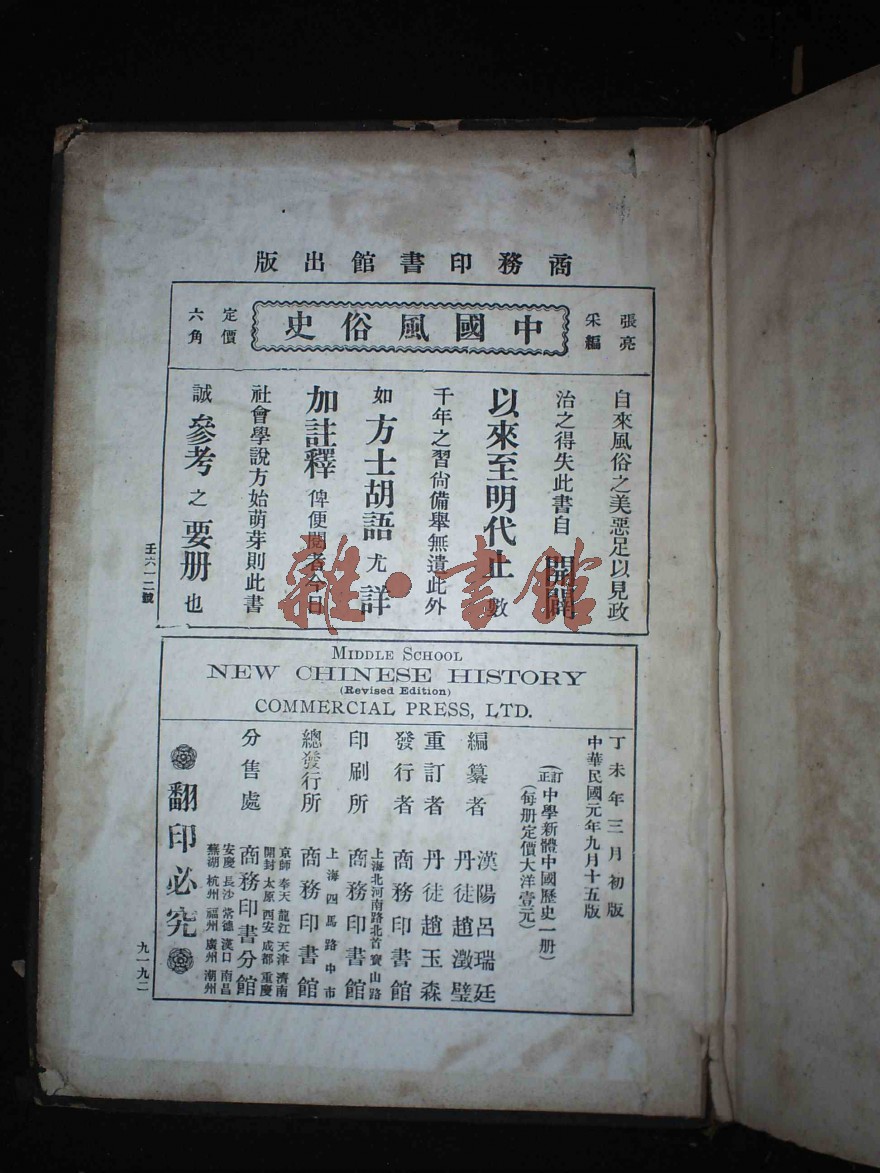 商務印書館出版
張亮
采編
中國風俗史
定價
六角
自來風俗之美惡足以見政
治之得失此書自開闢
以來至明代止數
千年之習尙備舉無遺此外
如方士胡語尤詳
加註釋俾便閱者今日
社會學說方始萌芽則此書
誠參考之要册也
壬六一二號
雜·書館
MIDDLE SCHOOL
NEW CHINESE HISTORY
(Revised Edition)
COMMERCIAL PRESS, LTD.
丁未年三月初版
中華民國元年九月十五版
(訂正)中學新體中國歷史一册)
(每册定價大洋壹元)
編纂者 漢陽呂瑞廷
丹徒趙澂璧
重訂者 丹徒趙玉森
發行者 商務印書館
上海北河南路北首寶山路
印刷所 商務印書館
上海四馬路中市
總發行所 商務印書館
京師 奉天 龍江 天津 濟南
開封 太原 西安 成都 重慶
分售處 商務印書分館
安慶 長沙 常德 漢口 南昌
蕪湖 杭州 福州 廣州 潮州
翻印必究
九一九二